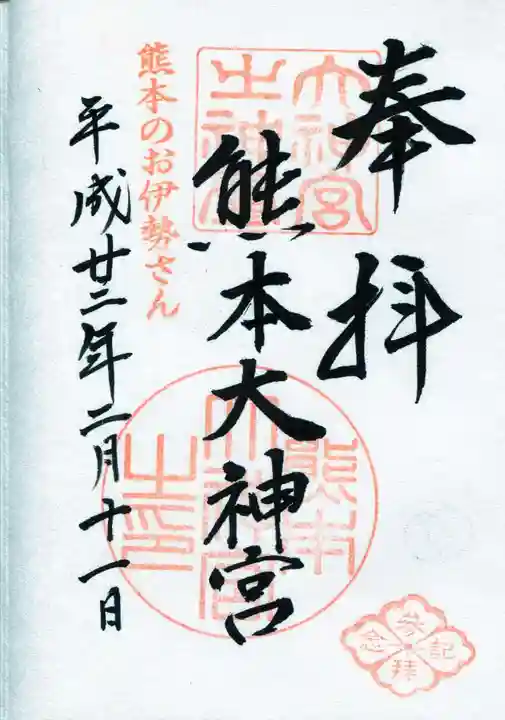 奉拝
大神宮之神璽
熊本大神宮
熊本大神宮之印
熊本のお伊勢さん
平成廿二年二月十一日
参拝記念